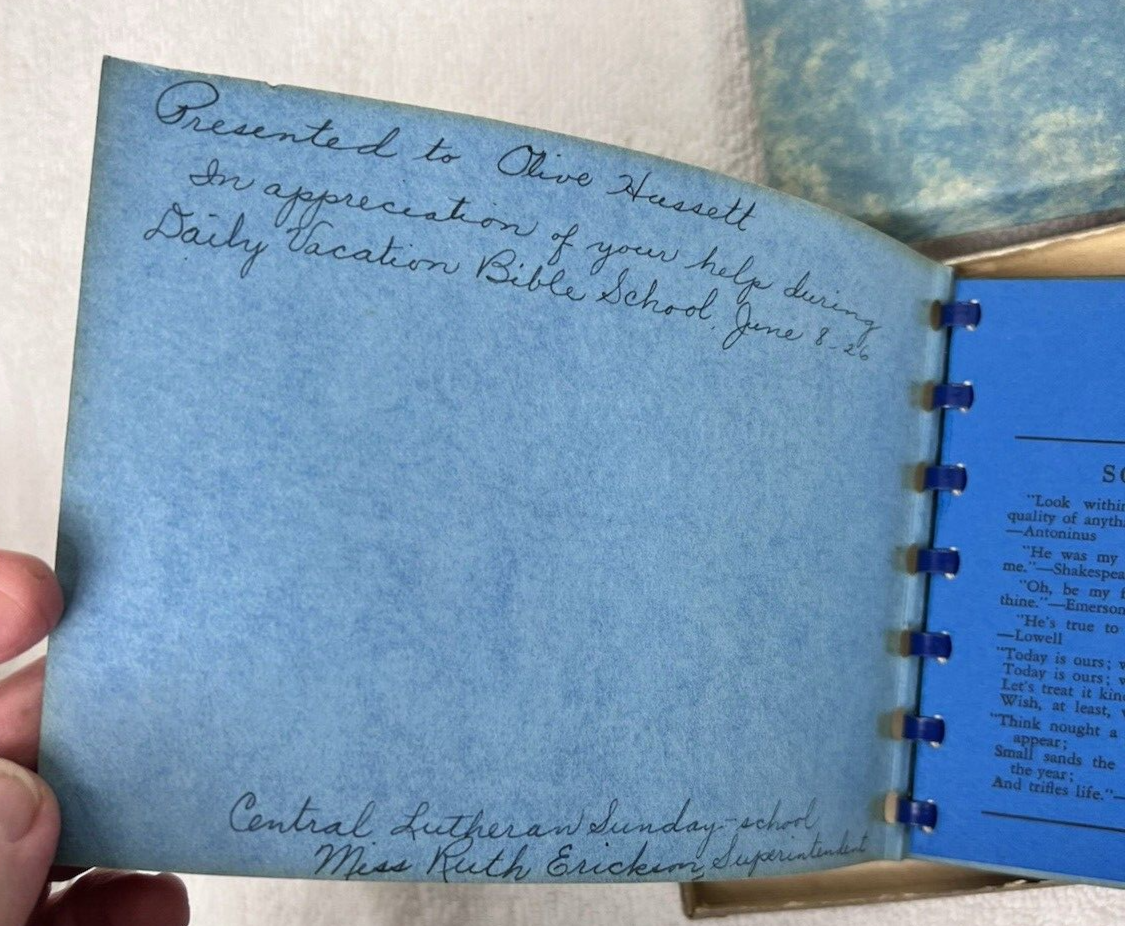 Presented to Olive Hassett
In appreciation of your help during
Daily Vacation Bible School, June 8-26
Central Lutheran Sunday-school
Miss Ruth Erickson, Superintendent
"Look within
quality of anyth
—Antoninus
"He was my
me."—Shakespea
"Oh, be my f
thine."—Emerson
"He's true to
—Lowell
"Today is ours; w
Today is ours; w
Let's treat it kin
Wish, at least, w
"Think nought a
appear;
Small sands the
the year;
And trifles life."—